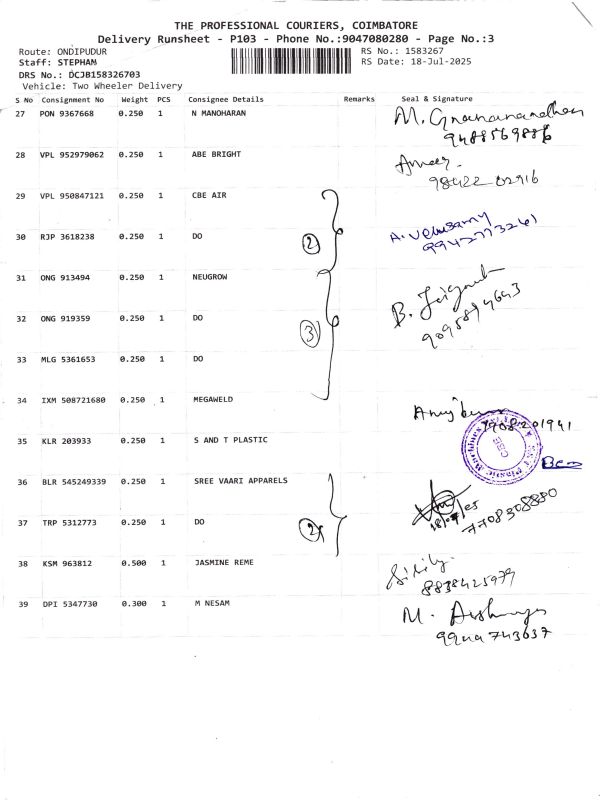 THE PROFESSIONAL COURIERS, COIMBATORE
Delivery Runsheet - P103 - Phone No.:9047080280 - Page No.:3
Route: ONDIPUDUR RS No.: 1583267
Staff: STEPHAN RS Date: 18-Jul-2025
DRS No.: DCJB158326703
Vehicle: Two Wheeler Delivery
S No Consignment No Weight PCS Consignee Details Remarks Seal & Signature
27 PON 9367668 0.250 1 N MANOHARAN M. Gnanamanandhan
9488569886
28 VPL 952979062 0.250 1 ABE BRIGHT Ameer.
98422 02916
29 VPL 950847121 0.250 1 CBE AIR
30 RJP 3618238 0.250 1 DO 2 A. Velusamy
9942773261
31 ONG 913494 0.250 1 NEUGROW
32 ONG 919359 0.250 1 DO 3 B.
33 MLG 5361653 0.250 1 DO
34 IXM 508721680 0.250 1 MEGAWELD
7908201941
35 KLR 203933 0.250 1 S AND T PLASTIC CBE
36 BLR 545249339 0.250 1 SREE VAARI APPARELS
37 TRP 5312773 0.250 1 DO 2 7708308880
38 KSM 963812 0.500 1 JASMINE REME
8838425979
39 DPI 5347730 0.300 1 M NESAM M.
9944743637